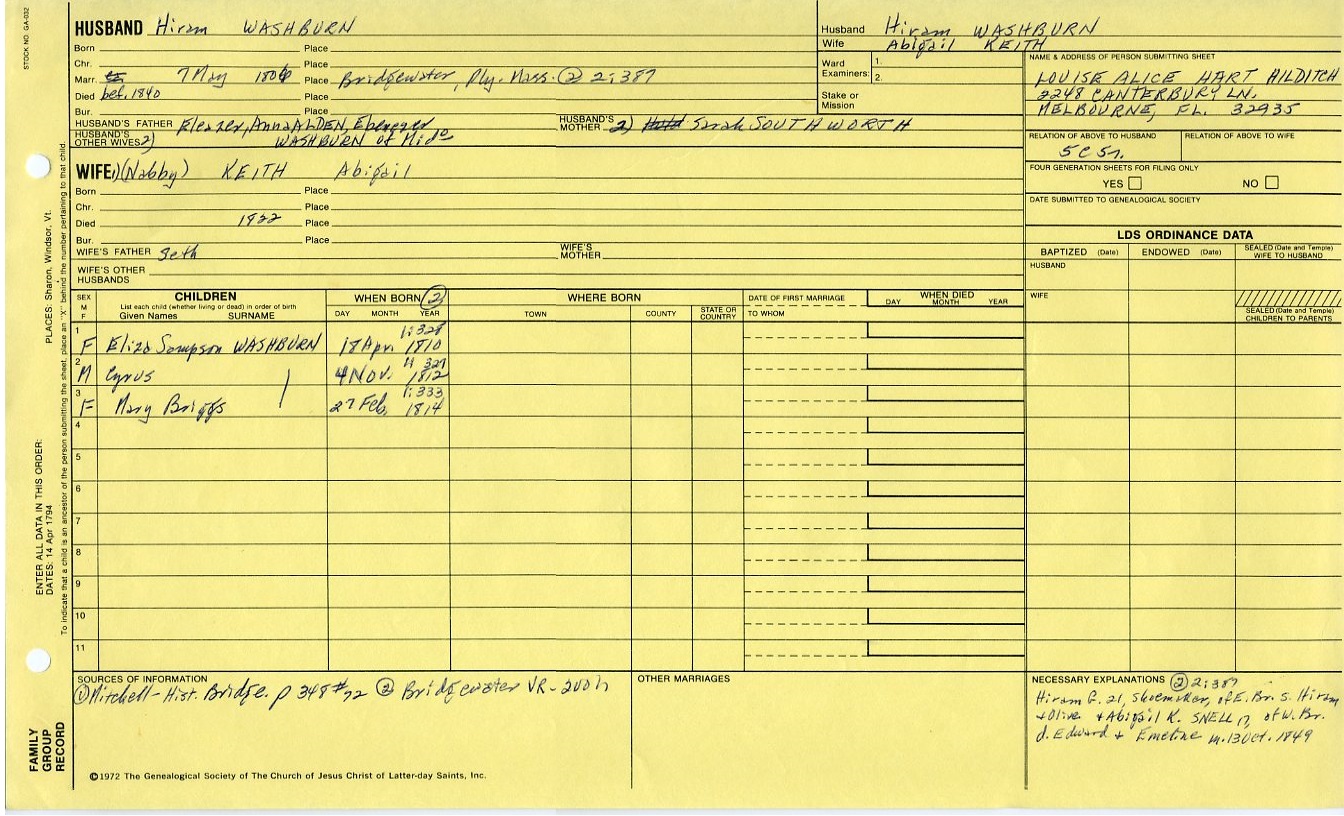 STOCK NO. GA-032
HUSBAND Hiram WASHBURN
Born Place
Chr. Place
Marr. 7 May 1806 Place Bridgewater, Ply. Mass. ② 2:387
Died bef. 1840 Place
Bur. Place
HUSBAND'S FATHER Eleazer, Anna ALDEN, Ebenezer HUSBAND'S MOTHER 2) Sarah SOUTHWORTH
HUSBAND'S OTHER WIVES 2) WASHBURN of Mido
Husband Hiram WASHBURN
Wife Abigail KEITH
Ward Examiners: 1.
2.
Stake or Mission
NAME & ADDRESS OF PERSON SUBMITTING SHEET
LOUISE ALICE HART HILDITCH
2248 CANTERBURY LN.
MELBOURNE, FL. 32935
RELATION OF ABOVE TO HUSBAND RELATION OF ABOVE TO WIFE
5C5r.
FOUR GENERATION SHEETS FOR FILING ONLY
YES NO
DATE SUBMITTED TO GENEALOGICAL SOCIETY
WIFE 1) (Nabby) KEITH Abigail
Born Place
Chr. Place
Died 1822 Place
Bur. Place
WIFE'S FATHER Seth WIFE'S MOTHER
WIFE'S OTHER HUSBANDS
LDS ORDINANCE DATA
BAPTIZED (Date) ENDOWED (Date) SEALED (Date and Temple) WIFE TO HUSBAND
HUSBAND
WIFE
SEALED (Date and Temple) CHILDREN TO PARENTS
SEX M F
CHILDREN
List each child (whether living or dead) in order of birth
Given Names SURNAME
WHEN BORN ②
DAY MONTH YEAR
WHERE BORN
TOWN COUNTY STATE OR COUNTRY
DATE OF FIRST MARRIAGE
TO WHOM
WHEN DIED
DAY MONTH YEAR
1 1:328
F Eliza Sampson WASHBURN 18 Apr 1810
2 327
M Cyrus 4 Nov. 1812
3 1:333
F Mary Briggs 27 Feb. 1814
4
5
6
7
8
9
10
11
SOURCES OF INFORMATION
① Mitchell-Hist. Bridge. p 348 #72 ② Bridgewater VR-
OTHER MARRIAGES
NECESSARY EXPLANATIONS ② 2:387
Hiram G. 21, shoemaker, of E. Br. s. Hiram
+ Olive + Abigail K. SNELL 17, of W. Br.
d. Edward + Emeline m. 13 Oct. 1849
©1972 The Genealogical Society of The Church of Jesus Christ of Latter-day Saints, Inc.
FAMILY GROUP RECORD
ENTER ALL DATA IN THIS ORDER:
DATES: 14 Apr 1794
PLACES: Sharon, Windsor, Vt.
To indicate that a child is an ancestor of the person submitting the sheet, place an "X" behind the number pertaining to that child.